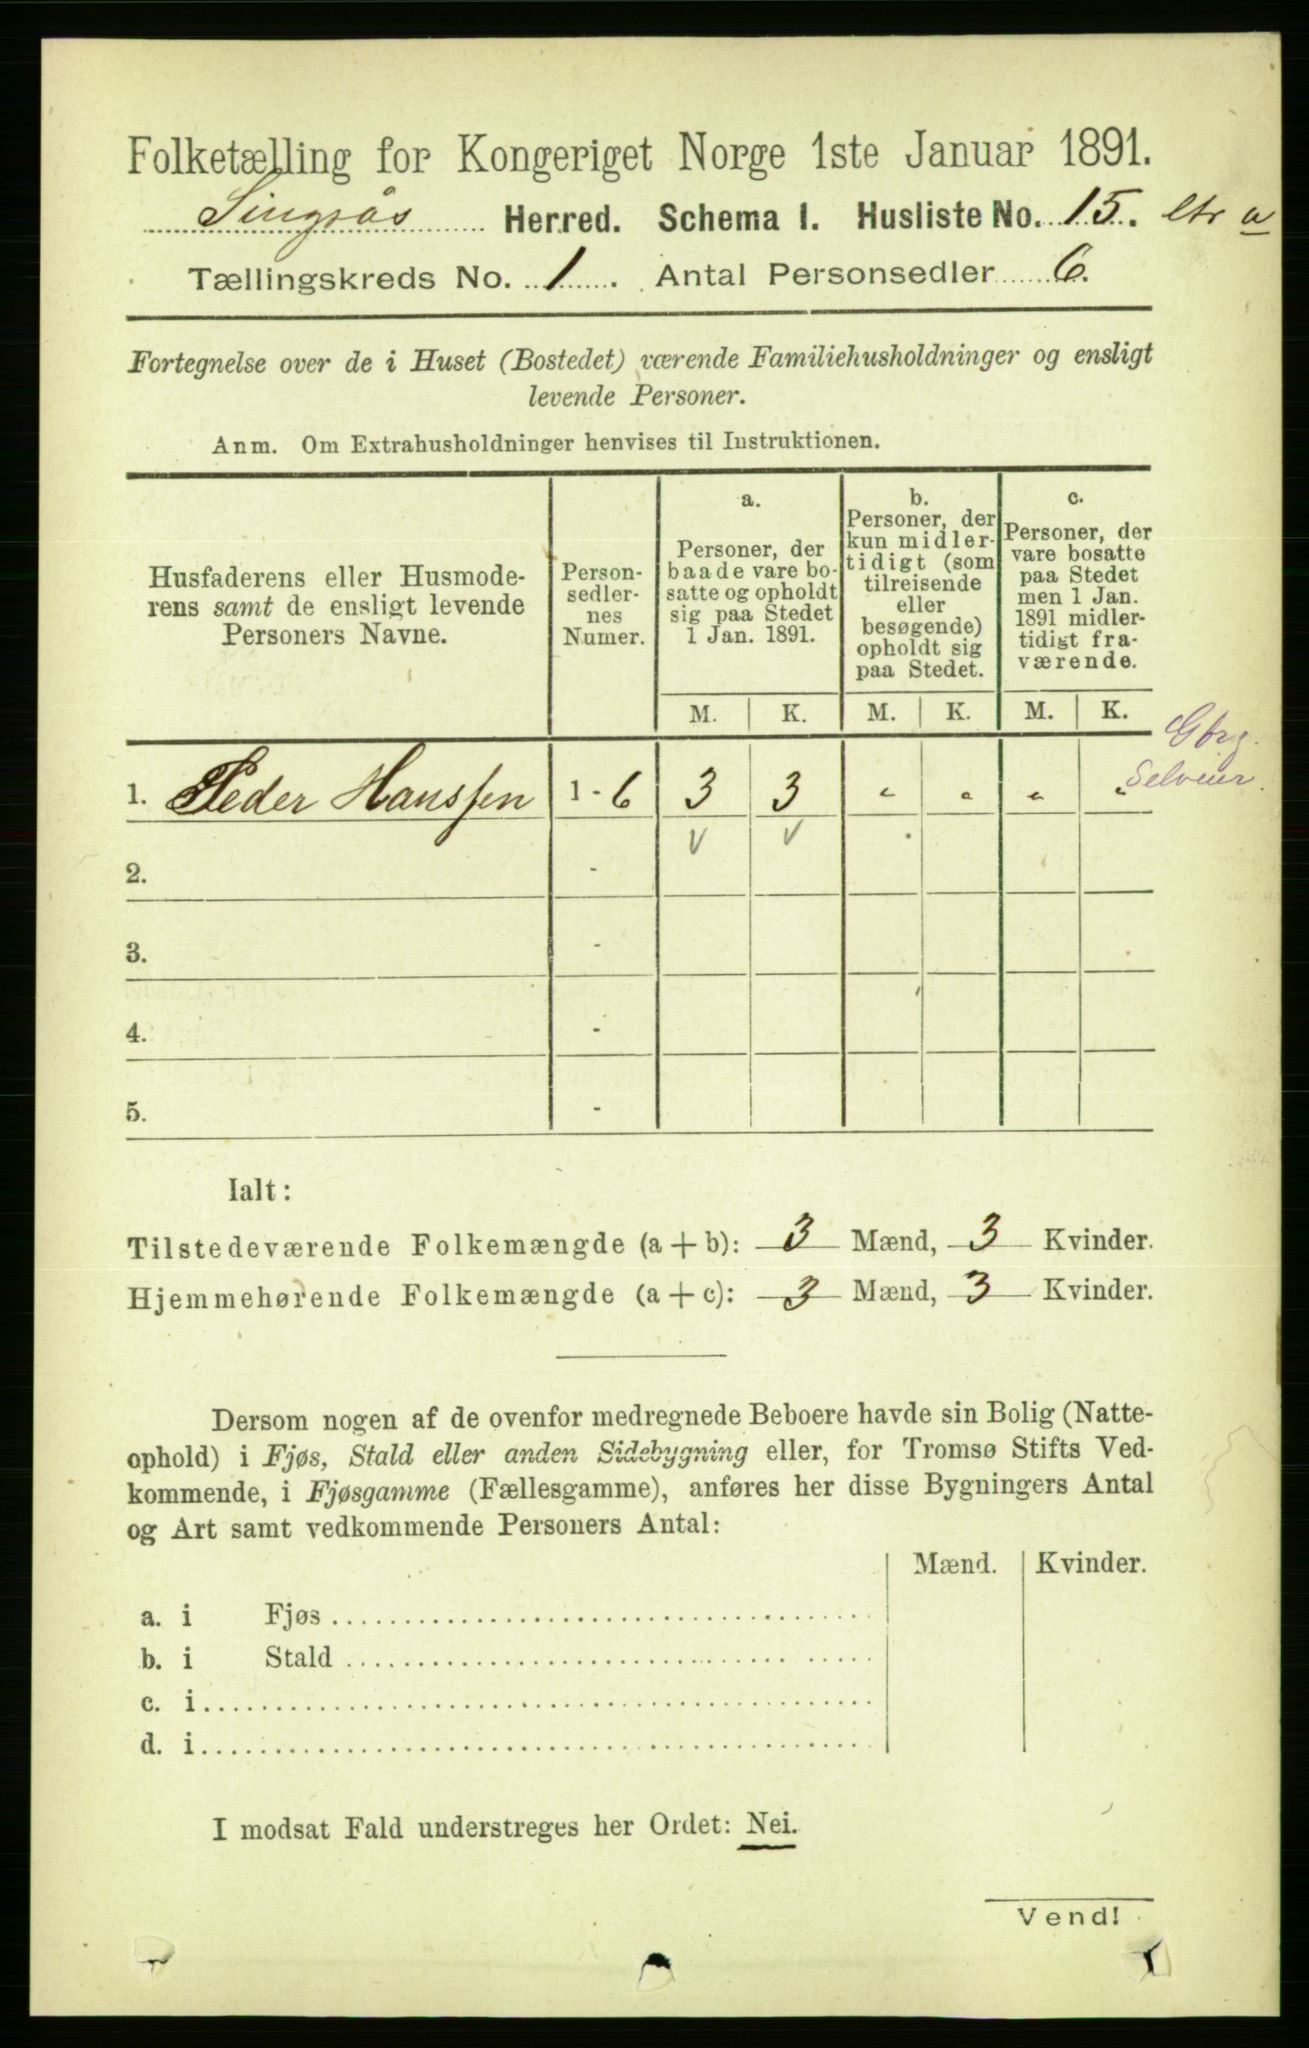 Folketælling for Kongeriget Norge 1ste Januar 1891.
Singsås Herred. Schema I. Husliste No. 15. ltr a
Tællingskreds No. 1. Antal Personsedler 6.
Fortegnelse over de i Huset (Bostedet) værende Familiehusholdninger og ensligt
levende Personer.
Anm. Om Extrahusholdninger henvises til Instruktionen.
Husfaderens eller Husmode-
rens samt de ensligt levende
Personers Navne.
Person-
sedler-
nes
Numer.
a.
Personer, der
baade vare bo-
satte og opholdt
sig paa Stedet
1 Jan. 1891.
b.
Personer, der
kun midler-
tidigt (som
tilreisende
eller
besøgende)
opholdt sig
paa Stedet.
c.
Personer, der
vare bosatte
paa Stedet
men 1 Jan.
1891 midler-
tidigt fra-
værende.
M. K. M. K. M. K.
Gbrg.
Selveier.
1. Peder Hanssen 1 - 6 3 3 " " " "
2. -
3. -
4. -
5. -
Ialt:
Tilstedeværende Folkemængde (a + b): 3 Mænd, 3 Kvinder.
Hjemmehørende Folkemængde (a + c): 3 Mænd, 3 Kvinder.
Dersom nogen af de ovenfor medregnede Beboere havde sin Bolig (Natte-
ophold) i Fjøs, Stald eller anden Sidebygning eller, for Tromsø Stifts Ved-
kommende, i Fjøsgamme (Fællesgamme), anføres her disse Bygningers Antal
og Art samt vedkommende Personers Antal:
Mænd. Kvinder.
a. i Fjøs
b. i Stald
c. i
d. i
I modsat Fald understreges her Ordet: Nei.
Vend!